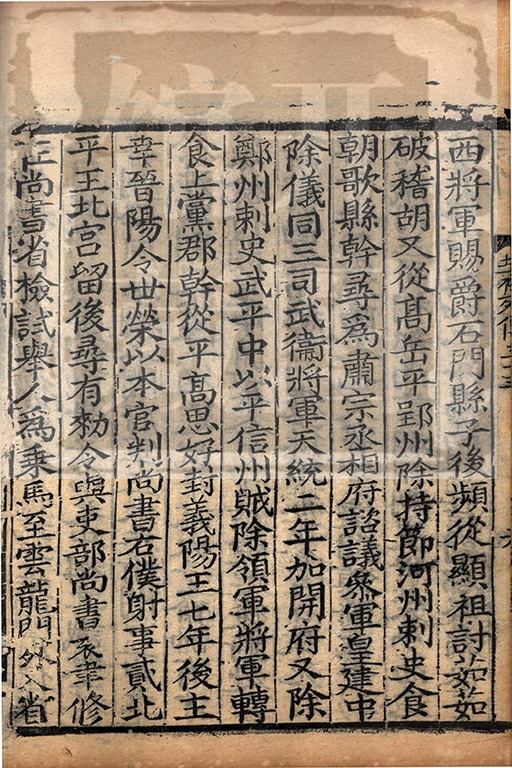 西將軍賜爵石門縣子後頻從顯祖討茹茹
破稽胡又從髙岳平郢州除持節河州刺史食
朝歌縣幹尋爲肅宗丞相府諮議叅軍皇建中
除儀同三司武衞將軍天統二年加開府又除
鄭州刺史武平中以平信州賊除領軍將軍轉
食上黨郡幹從平髙思好封義陽王七年後主
幸晉陽令世榮以本官判尚書右僕射事貳北
平王北宮留後尋有勑令與吏部尚書袁聿修
在尚書省檢試舉人爲乗馬至雲龍門外入省